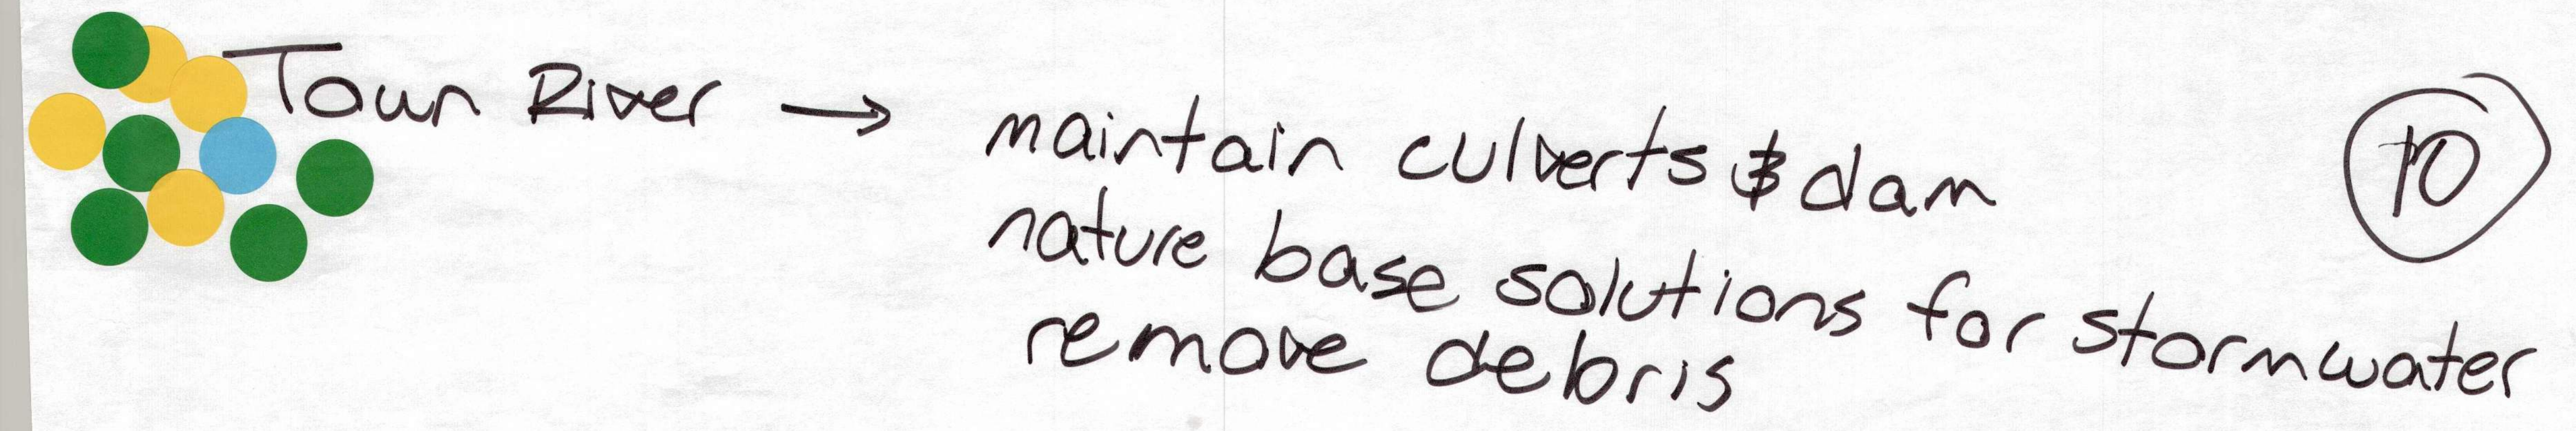 Town River → maintain culverts & dam
nature base solutions for stormwater
remove debris
10